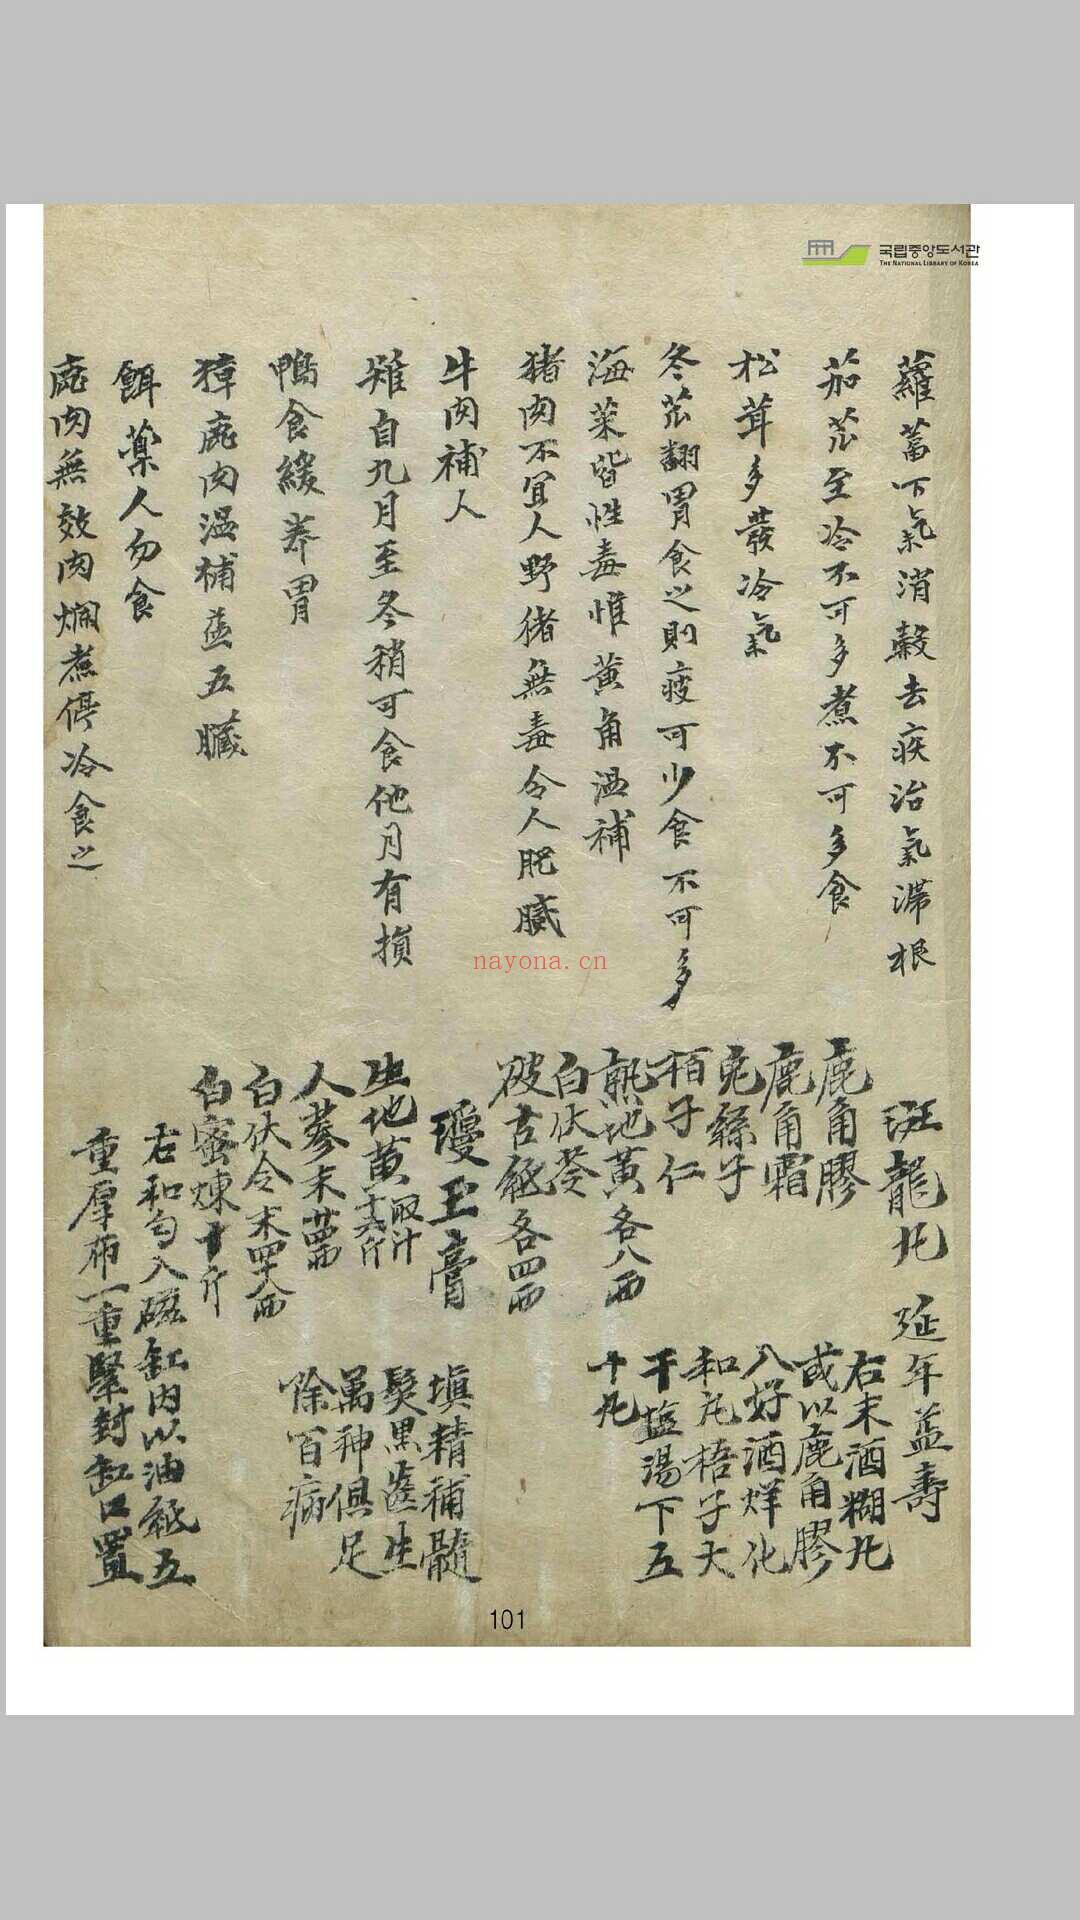 국립중앙도서관
THE NATIONAL LIBRARY OF KOREA
蘿葍下氣消穀去疾治氣滯根
茄芷至冷不可多煮不可多食
松茸多發冷氣
冬芷翻胃食之則疲可少食不可多
海菜皆性毒惟黃角溫補
猪肉不宜人野猪無毒令人肥膩
牛肉補人
雉自九月至冬稍可食他月有損
鴨食緩养胃
獐鹿肉溫補益五臟
餌藥人勿食
鹿肉無效肉爛煮停冷食之
斑龍丸 延年益壽
鹿角膠
鹿角霜
兎絲子
栢子仁
熟地黃各八両
白伏苓
破古紙各四両
右末酒糊丸
或以鹿角膠
入好酒烊化
和丸梧子大
干塩湯下五
十丸
瓊玉膏
生地黃十六斤取汁
人蔘末
白伏令末四十八両
白蜜煉十斤
塡精補髓
髮黒齒生
萬神俱足
除百病
右和匀入磁缸內以油紙五
重厚布一重緊封缸口置
nayona.cn
101